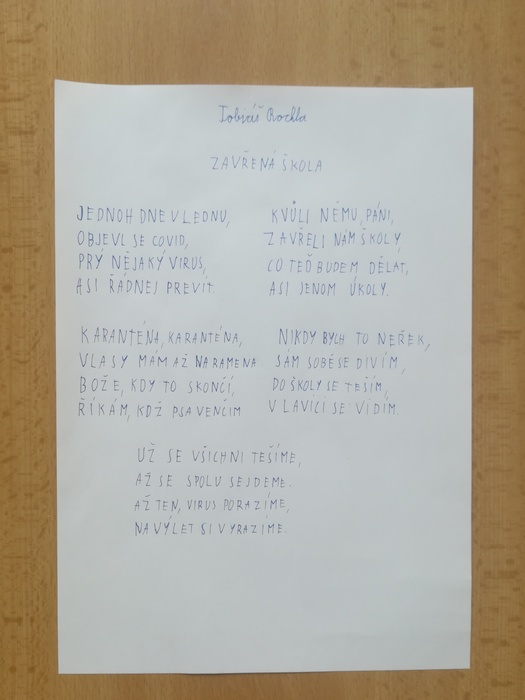 Tobiáš Rochla
ZAVŘENÁ ŠKOLA
JEDNOH DNE V LEDNU,
OBJEVL SE COVID,
PRÝ NĚJAKÝ VIRUS,
ASI ŘÁDNEJ PREVÍT.
KVŮLI NĚMU, PÁNI,
ZAVŘELI NÁM ŠKOLY,
CO TEĎ BUDEM DĚLAT,
ASI JENOM ÚKOLY.
KARANTÉNA, KARANTÉNA,
VLASY MÁM AŽ NA RAMENA
BOŽE, KDY TO SKONČÍ,
ŘÍKÁM, KDŽ PSA VENČIM
NIKDY BYCH TO NEŘEK,
SÁM SOBĚ SE DIVÍM,
DO ŠKOLY SE TEŠÍM,
V LAVICI SE VIDÍM.
UŽ SE VŠICHNI TEŠÍME,
AŽ SE SPOLU SEJDEME.
AŽ TEN, VIRUS PORAZÍME,
NA VÝLET SI VYRAZÍME.